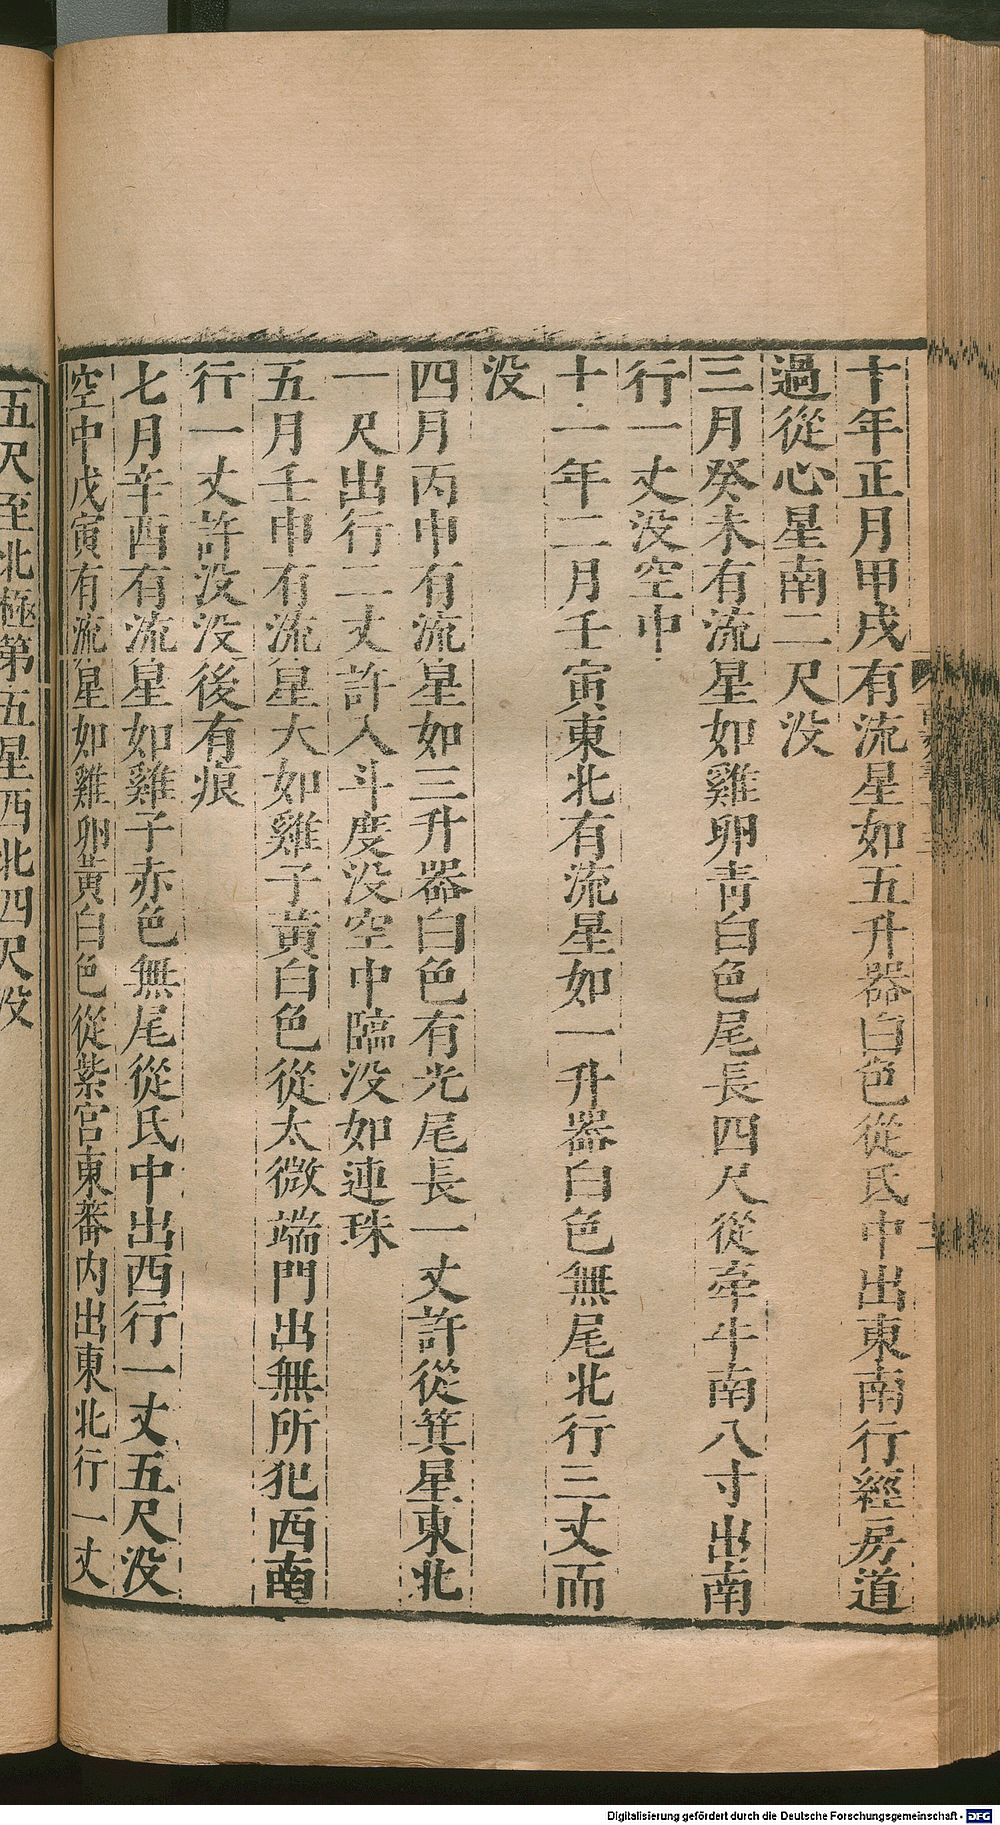 十年正月甲戌有流星如五升器白色從氐中出東南行經房道
過從心星南二尺没
三月癸未有流星如雞卵青白色尾長四尺從牽牛南八寸出南
行一丈没空中
十一年二月壬寅東北有流星如一升器白色無尾北行三丈而
没
四月丙申有流星如三升器白色有光尾長一丈許從箕星東北
一尺出行二丈許入斗度没空中臨没如連珠
五月壬申有流星大如雞子黃白色從太微端門出無所犯西南
行一丈許没没後有痕
七月辛酉有流星如雞子赤色無尾從氐中出西行一丈五尺没
空中戊寅有流星如雞卵黃白色從紫宮東蕃内出東北行一丈
五尺至北極第五星西北四尺没
Digitalisierung gefördert durch die Deutsche Forschungsgemeinschaft - DFG